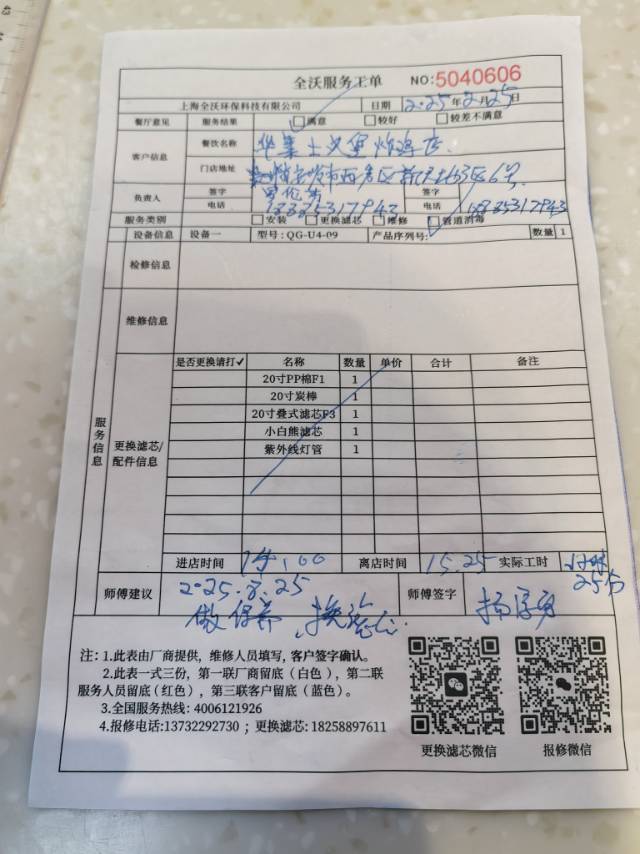 全沃服务工单 NO:5040606
上海全沃环保科技有限公司 日期 2025年2月25日
餐厅意见 服务结果 □满意 □较好 □较差不满意
客户信息 餐饮名称 华莱士汉堡炸鸡店
门店地址
负责人 签字 电话 签字 电话
服务类别 □安装 □更换滤芯 □维修 □管道消毒
设备信息 设备一 型号:QG-U4-09 产品序列号: 数量 1
检修信息
维修信息
服务信息
更换滤芯/配件信息
是否更换请打✓ 名称 数量 单价 合计 备注
20寸PP棉F1 1
20寸炭棒 1
20寸叠式滤芯F3 1
小白熊滤芯 1
紫外线灯管 1
进店时间 14:00 离店时间 15.25 实际工时 1小时25分
师傅建议 2025.8.25 师傅签字
做保养、换滤芯
注:1.此表由厂商提供,维修人员填写,客户签字确认。
2.此表一式三份,第一联厂商留底(白色),第二联
服务人员留底(红色),第三联客户留底(蓝色)。
3.全国服务热线:4006121926
4.报修电话:13732292730;更换滤芯:18258897611
更换滤芯微信 报修微信